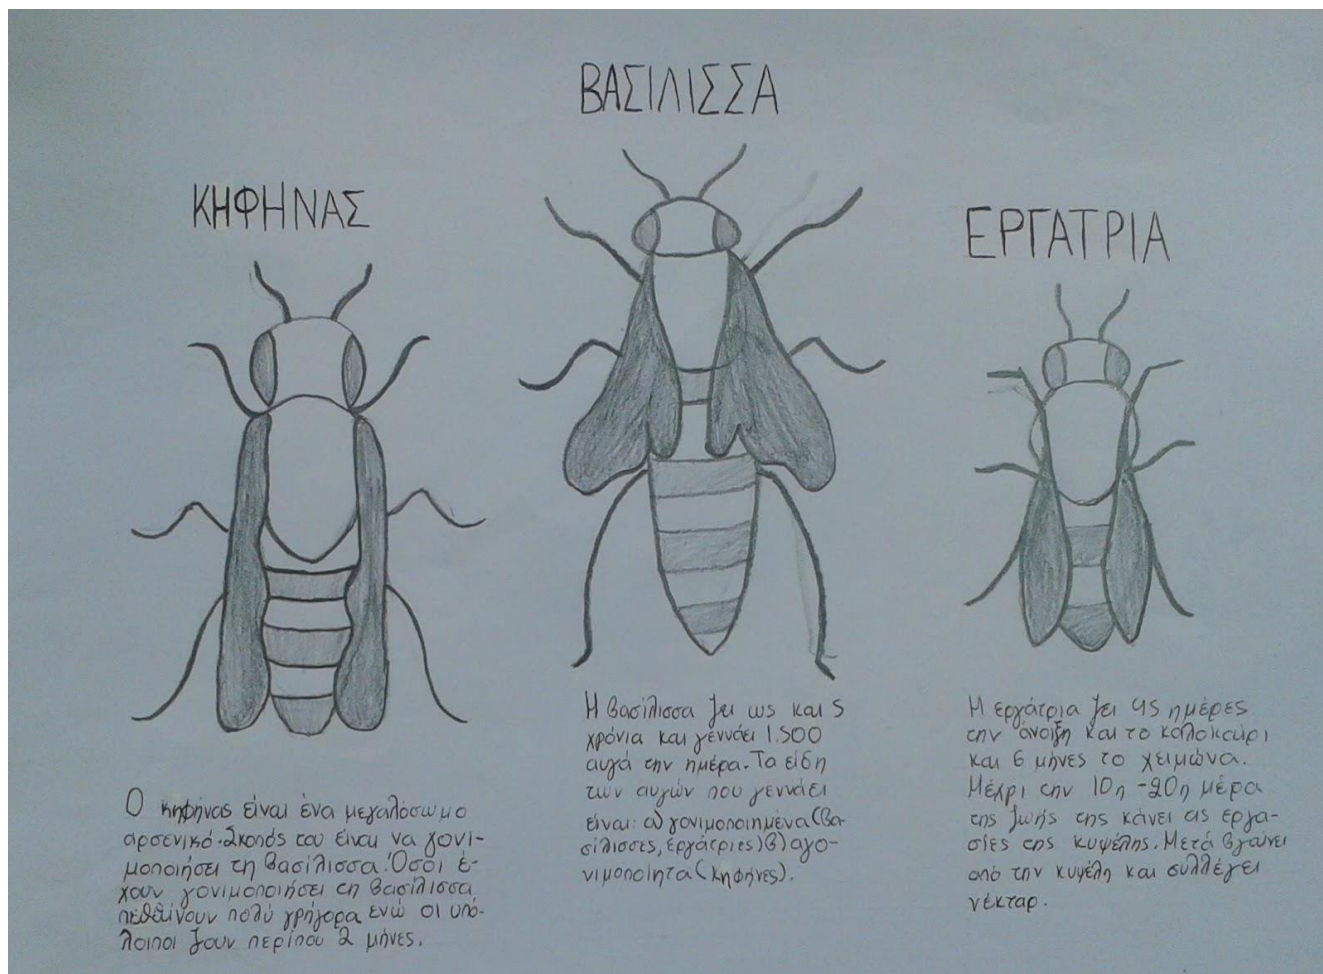 ΒΑΣΙΛΙΣΣΑ
ΚΗΦΗΝΑΣ
ΕΡΓΑΤΡΙΑ
Ο κηφήνας είναι ένα μεγαλόσωμο
αρσενικό. Σκοπός του είναι να γονι-
μοποιήσει τη βασίλισσα. Όσοι έ-
χουν γονιμοποιήσει τη βασίλισσα
πεθαίνουν πολύ γρήγορα ενώ οι υπό-
λοιποι ζουν περίπου 2 μήνες.
Η βασίλισσα ζει ως και 5
χρόνια και γεννάει 1.500
αυγά την ημέρα. Τα είδη
των αυγών που γεννάει
είναι: α) γονιμοποιημένα (βα-
σίλισσες, εργάτριες) β) αγο-
νιμοποίητα (κηφήνες).
Η εργάτρια ζει 45 ημέρες
την άνοιξη και το καλοκαίρι
και 6 μήνες το χειμώνα.
Μέχρι την 10η -20η μέρα
της ζωής της κάνει τις εργα-
σίες της κυψέλης. Μετά βγαίνει
από την κυψέλη και συλλέγει
νέκταρ.